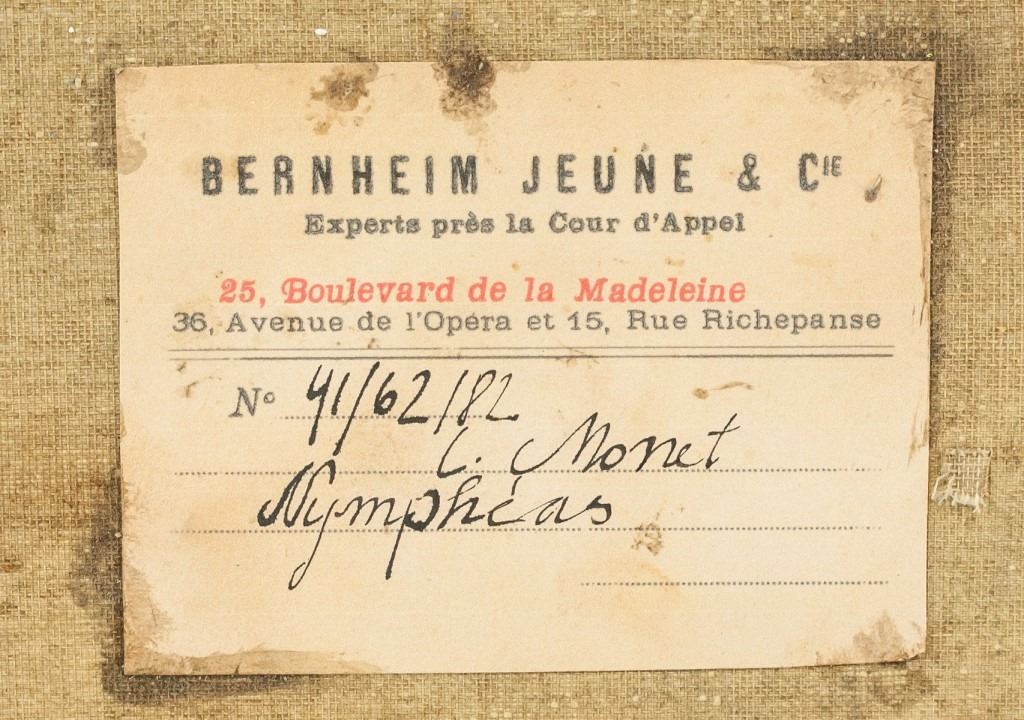 BERNHEIM JEUNE & CIE
Experts près la Cour d'Appel
25, Boulevard de la Madeleine
36, Avenue de l'Opéra et 15, Rue Richepanse
No 41/62/82
C. Monet
Nymphéas